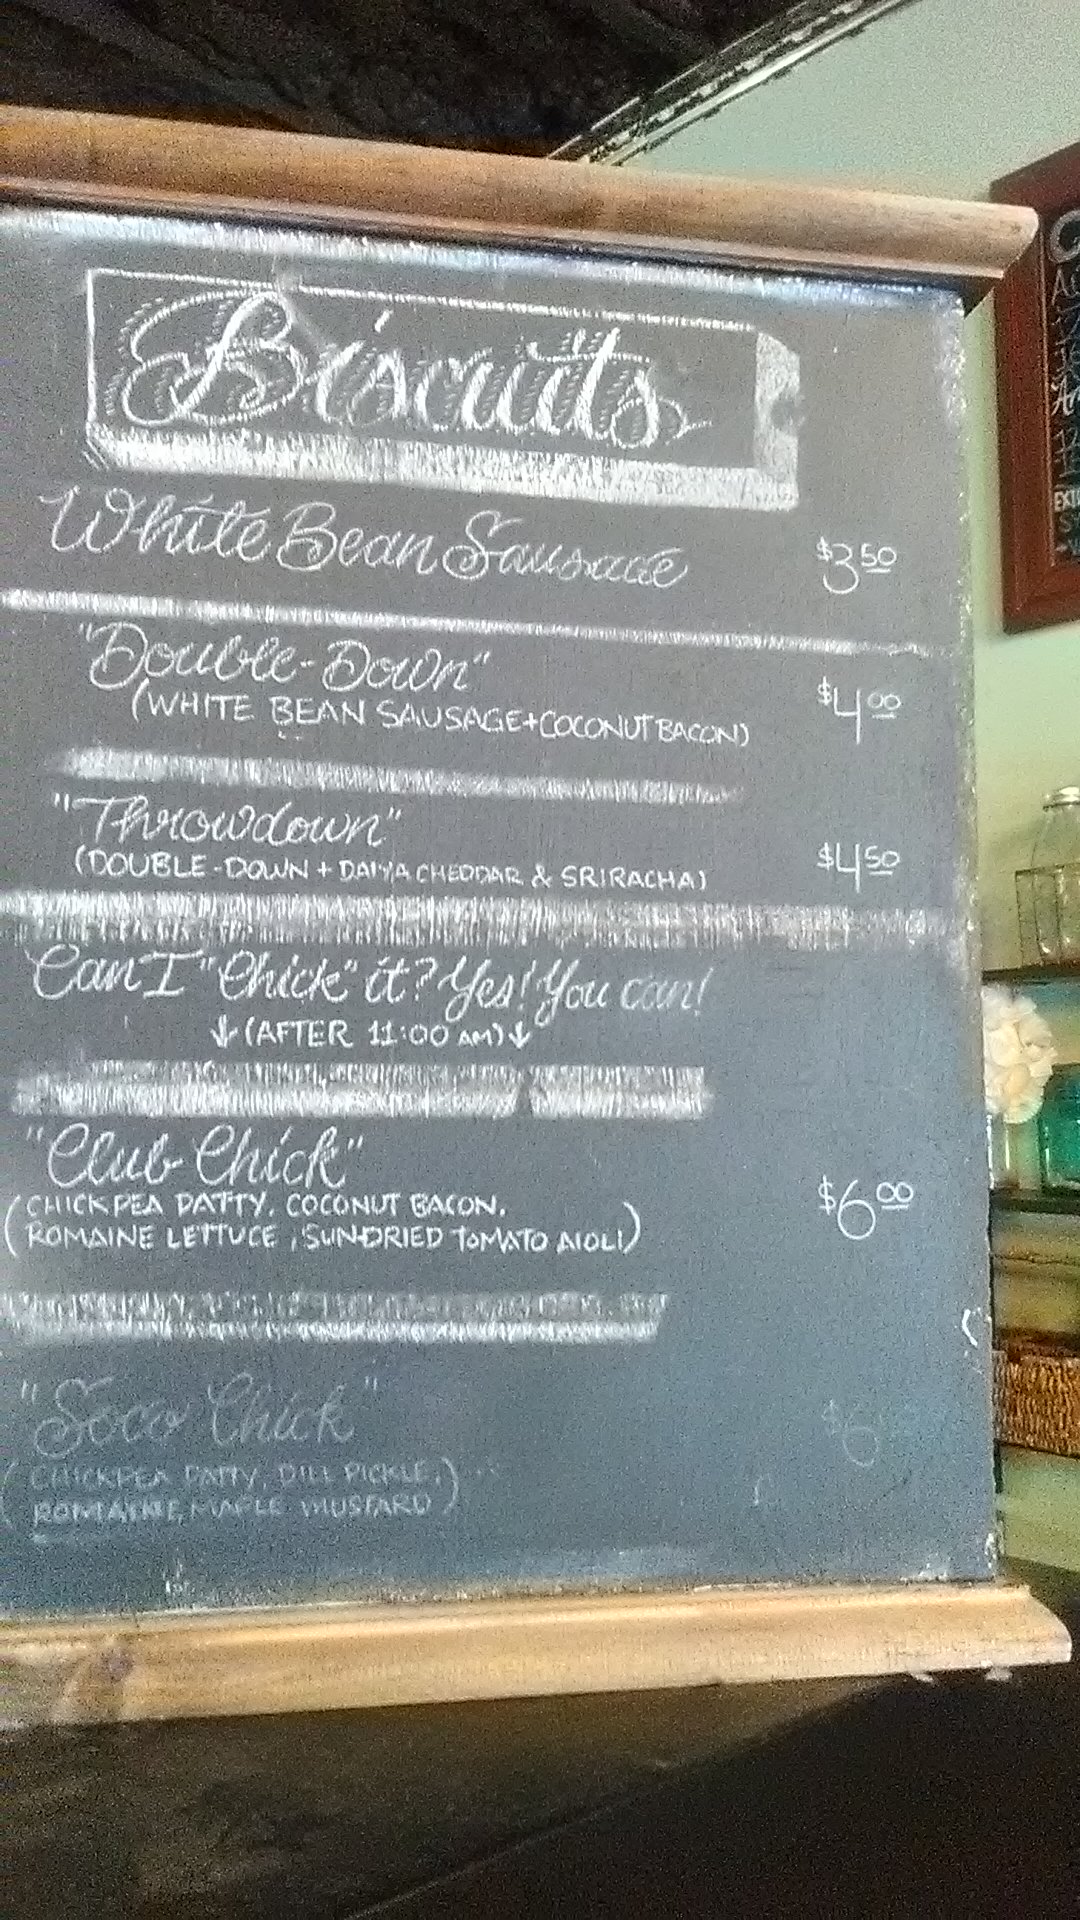 Biscuits
White Bean Sausage $3.50
"Double-Down"
(WHITE BEAN SAUSAGE+COCONUT BACON) $4.00
"Throwdown"
(DOUBLE-DOWN + DAIYA CHEDDAR & SRIRACHA) $4.50
Can I "Chick" it? Yes! You can!
↓(AFTER 11:00 AM)↓
"Club Chick"
(CHICKPEA PATTY, COCONUT BACON, $6.00
ROMAINE LETTUCE, SUN-DRIED TOMATO AIOLI)
"Soco Chick" $6
(CHICKPEA PATTY, DILL PICKLE,
ROMAINE, MAPLE MUSTARD)
EXT